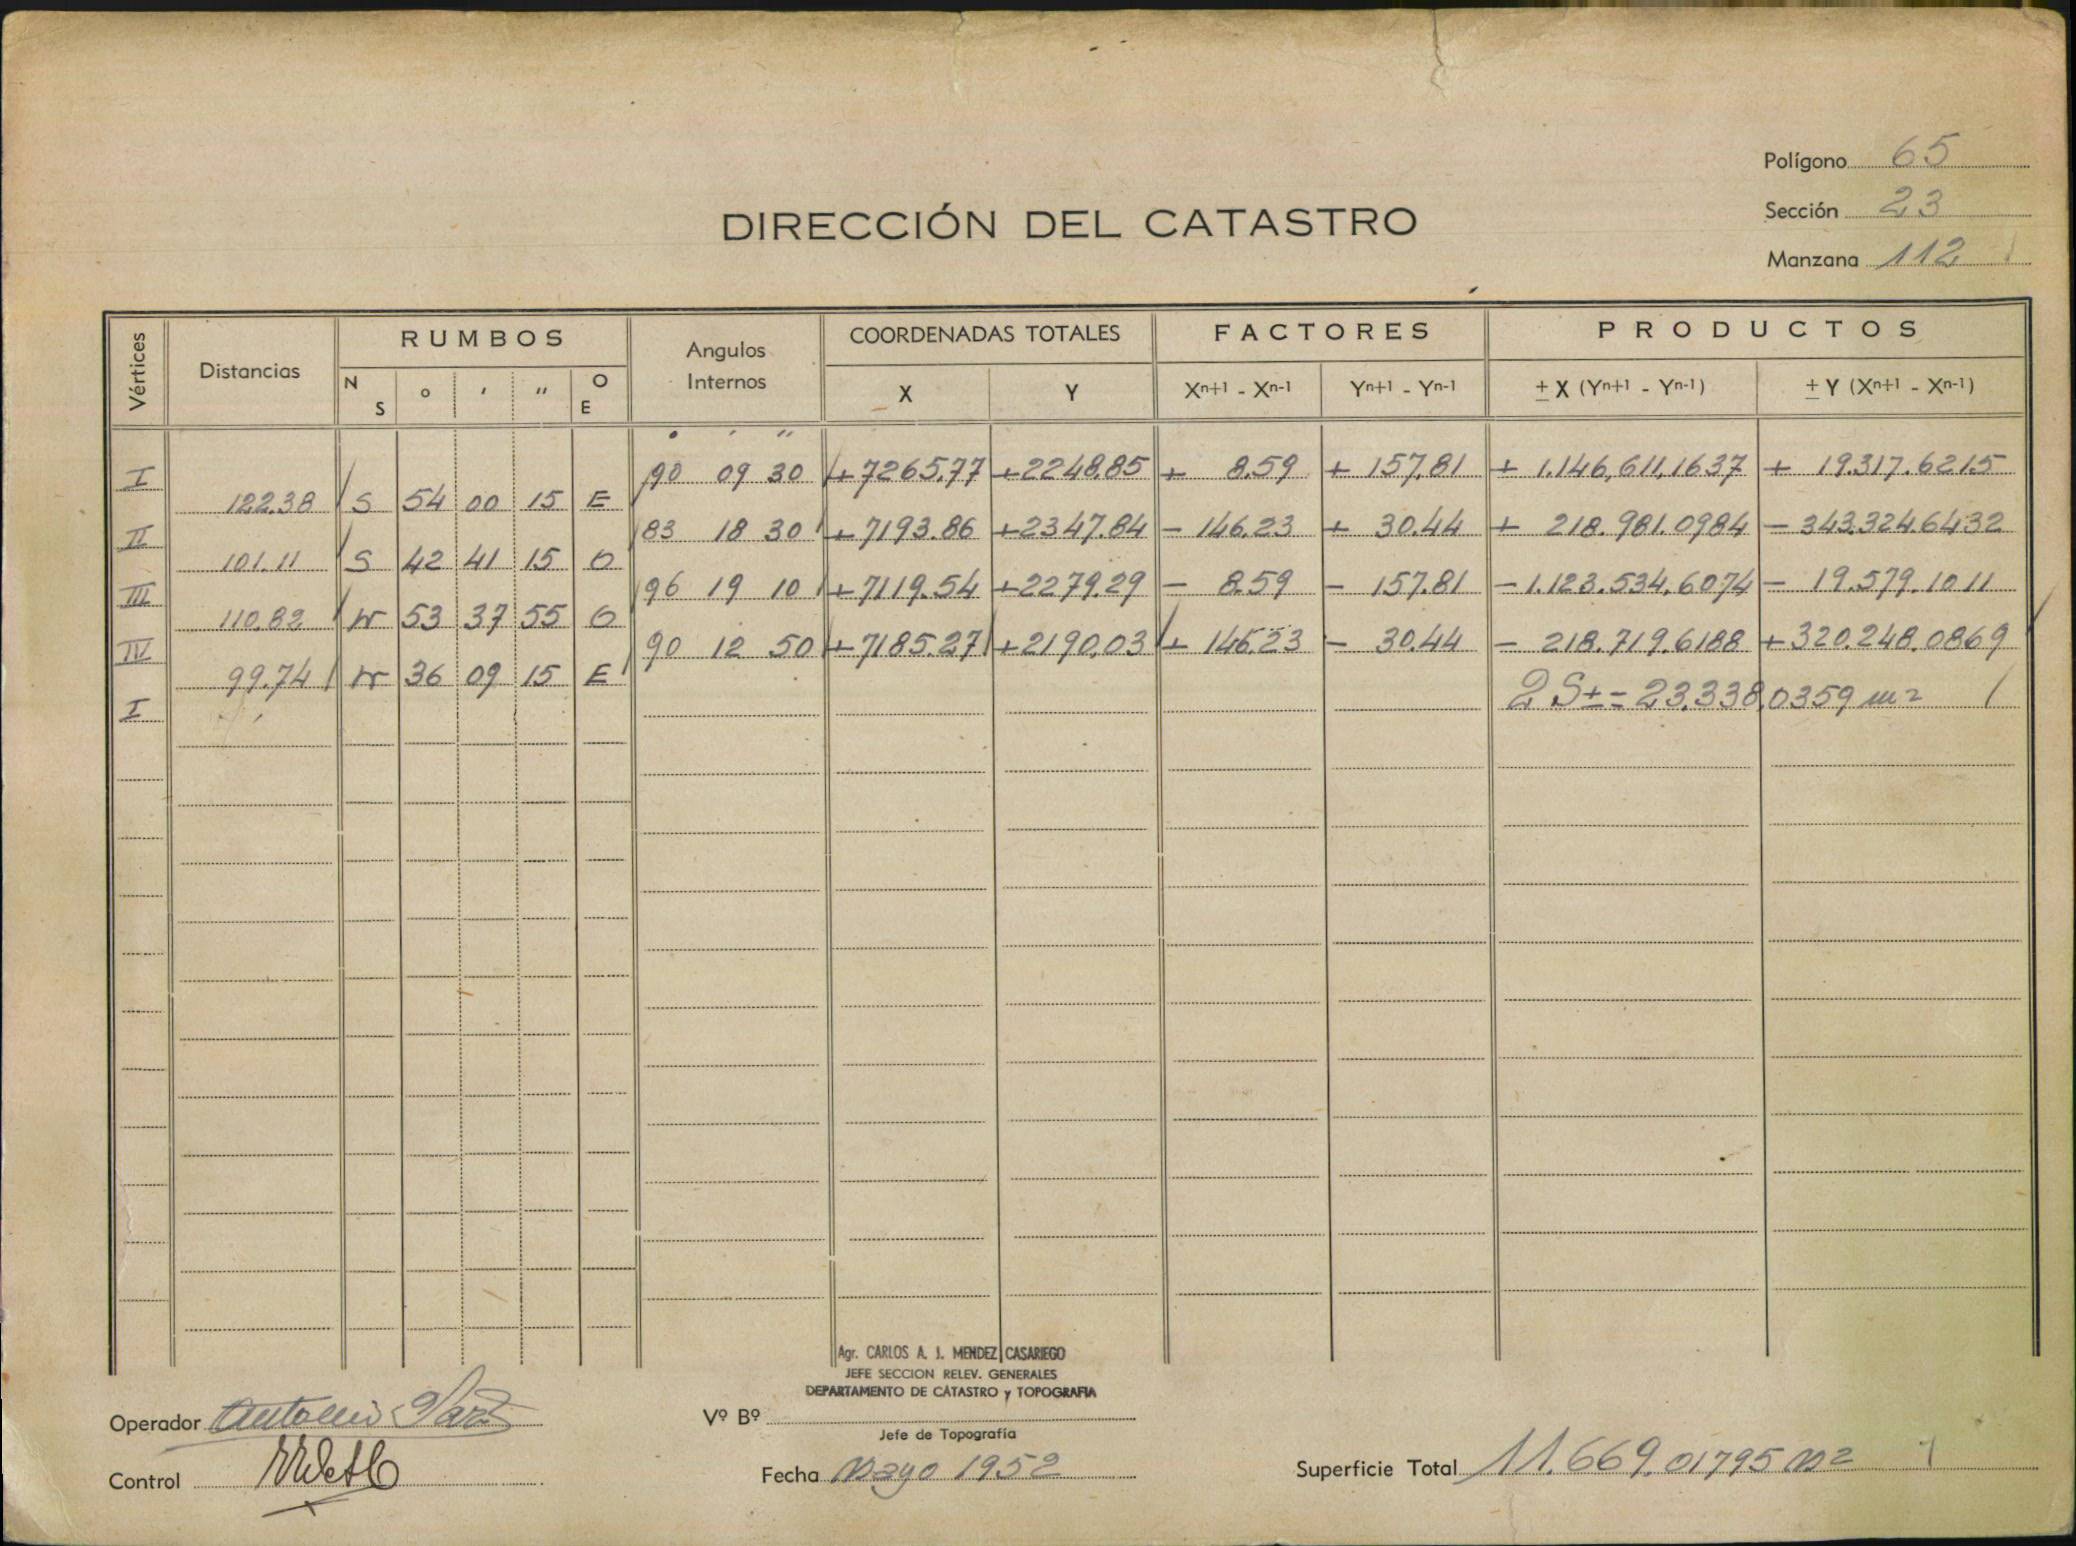 Polígono 65
DIRECCIÓN DEL CATASTRO
Sección 23
Manzana 112
Vértices Distancias RUMBOS Angulos Internos COORDENADAS TOTALES FACTORES PRODUCTOS
N S o ' " O E X Y Xn+1 - Xn-1 Yn+1 - Yn-1 ± X (Yn+1 - Yn-1) ± Y (Xn+1 - Xn-1)
° ' "
I 90 09 30 +7265.77 +2248.85 + 8.59 + 157.81 + 1.146,611,1637 + 19.317.6215
122.38 S 54 00 15 E
II 83 18 30 +7193.86 +2347.84 - 146.23 + 30.44 + 218.981.0984 - 343.324.6432
101.11 S 42 41 15 O
III 96 19 10 +7119.54 +2279.29 - 8.59 - 157.81 - 1.123.534.6074 - 19.579.1011
110.82 N 53 37 55 O
IV 90 12 50 +7185.27 +2190.03 + 146.23 - 30.44 - 218.719.6188 +320.248.0869
99.74 N 36 09 15 E
I 2 S ± = 23.338,0359 m2
Agr. CARLOS A. J. MENDEZ CASARIEGO
JEFE SECCION RELEV. GENERALES
DEPARTAMENTO DE CATASTRO y TOPOGRAFIA
Operador Antonio
Vº Bº
Jefe de Topografía
Control
Fecha Mayo 1952
Superficie Total 11.669.01795 m2